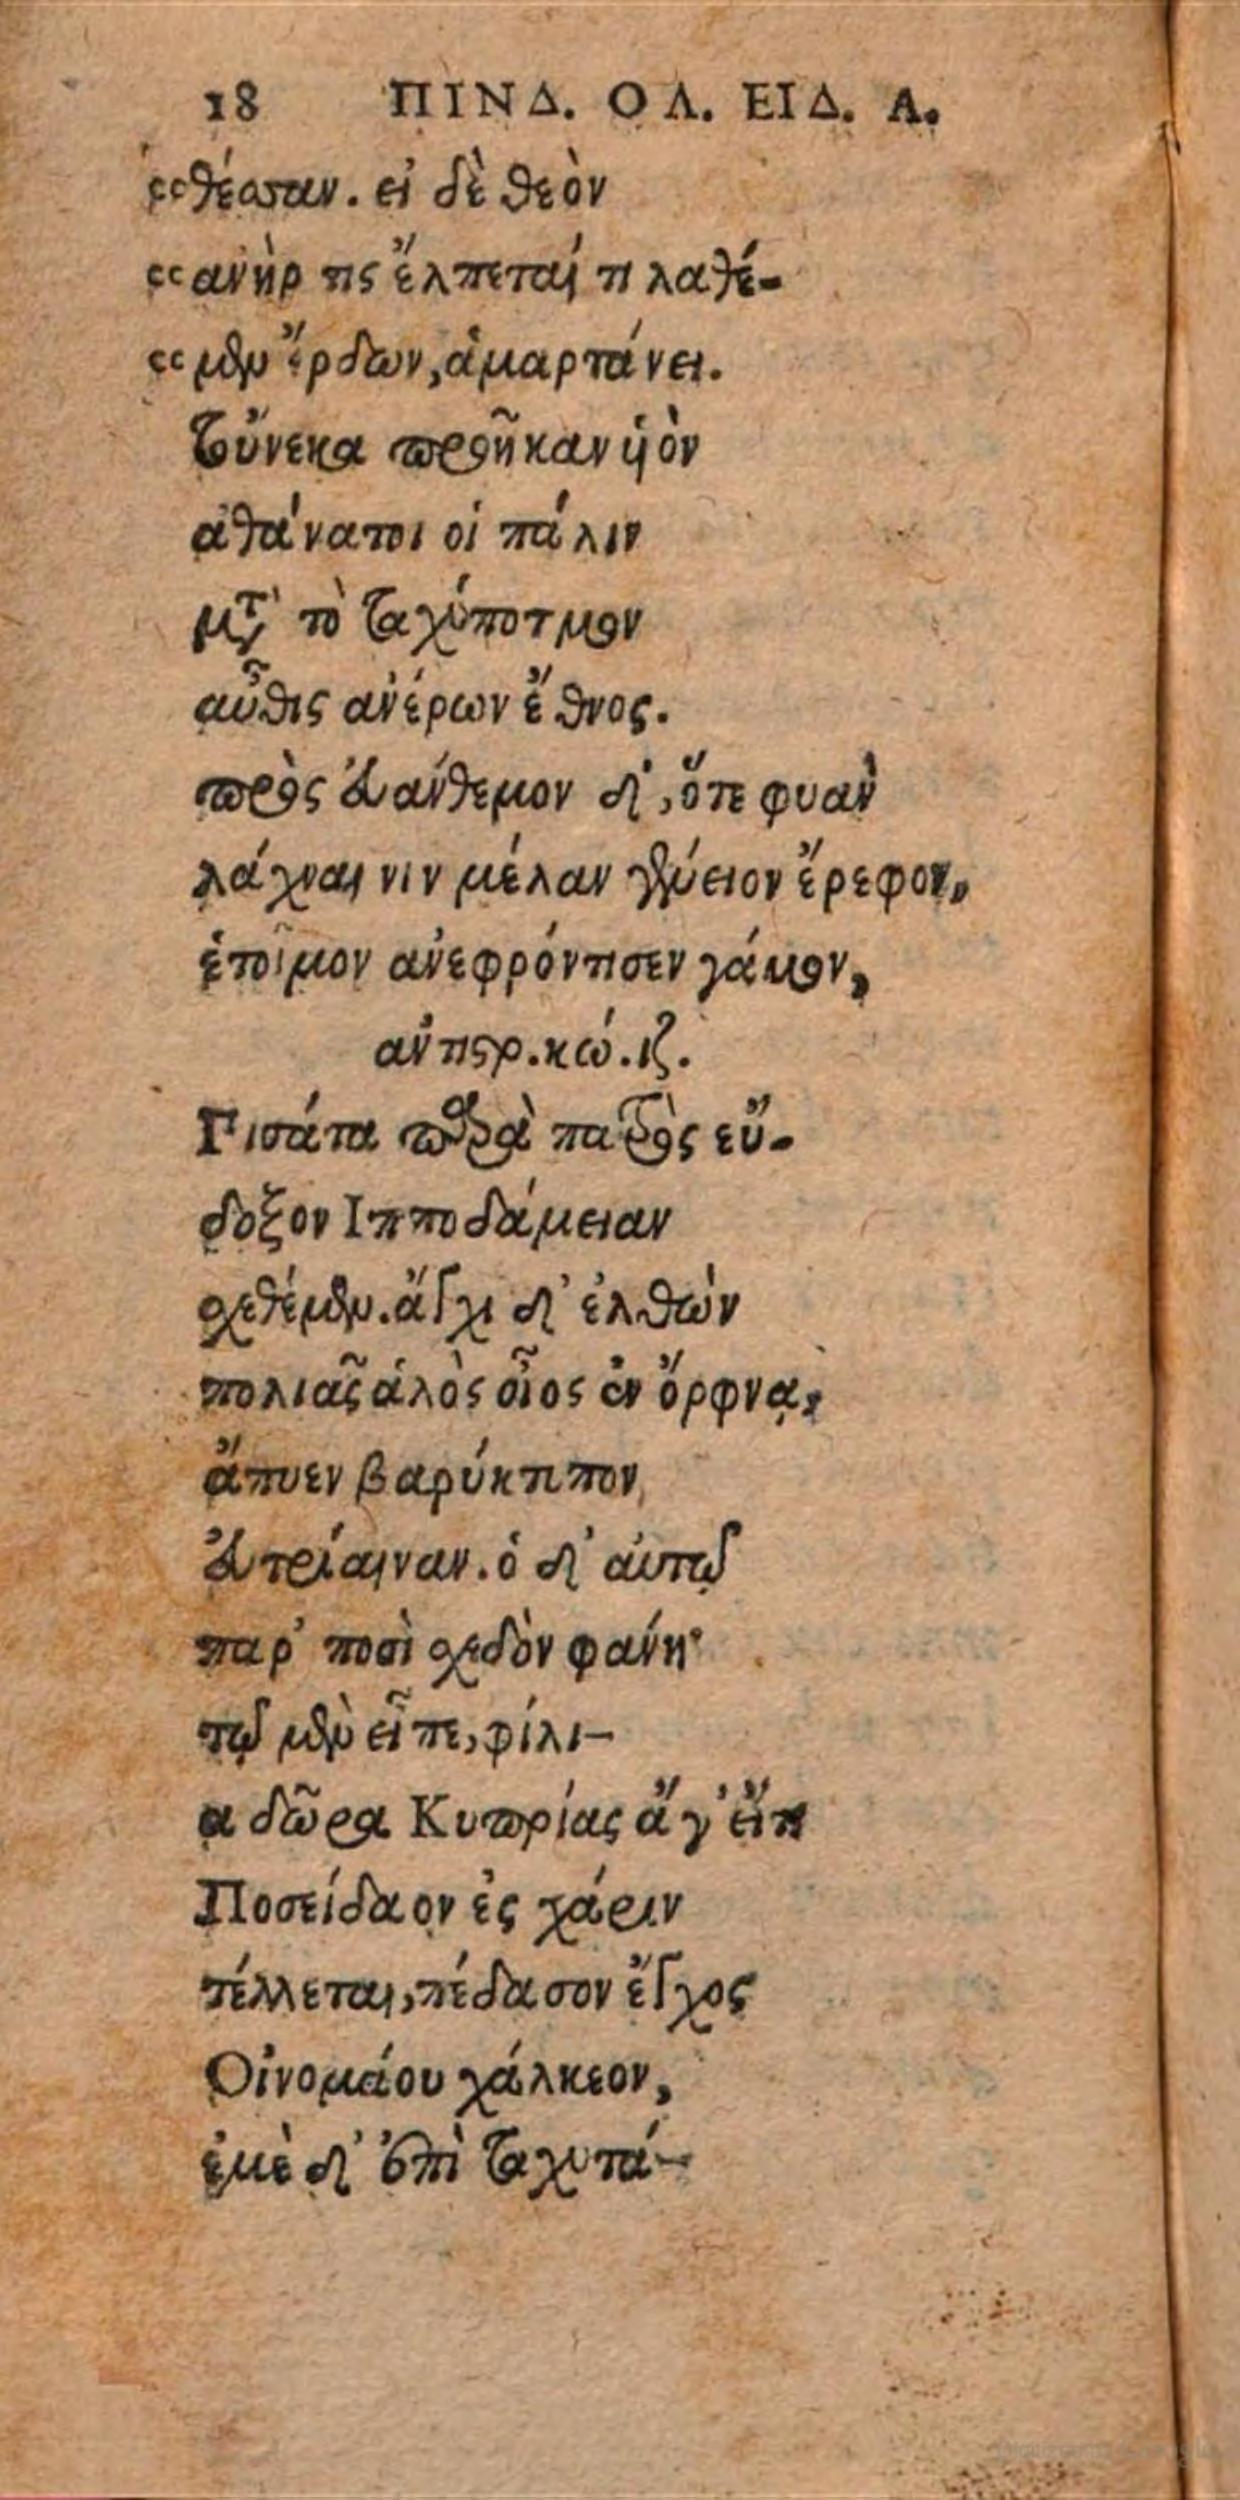 18 ΠΙΝΔ. ΟΛ. ΕΙΔ. Α.
“θέσαν. εἰ δὲ θεὸν
“ἀνήρ τις ἔλπεταί τι λαθέ-
“μεν ἔρδων, ἁμαρτάνει.
Τοὔνεκα προῆκαν ὑὸν
ἀθάνατοι οἱ πάλιν
μετὰ τὸ ταχύποτμον
αὖθις ἀνέρων ἔθνος.
πρὸς εὐάνθεμον δ', ὅτε φυὰν
λάχναι νιν μέλαν γένειον ἔρεφον,
ἑτοῖμον ἀνεφρόντισεν γάμον,
ἀντιστρ. κώ. ιζ.
Πισάτα παρὰ πατρὸς εὔ-
δοξον Ιπποδάμειαν
σχεθέμεν. ἄγχι δ' ἐλθὼν
πολιᾶς ἁλὸς οἶος ἐν ὄρφνᾳ,
ἄπυεν βαρύκτυπον
Εὐτρίαιναν. ὁ δ' αὐτῷ
παρ' ποσὶ σχεδὸν φάνη·
τῷ μὲν εἶπε, φίλι-
α δῶρα Κυπρίας ἄγ' εἴ τι
Ποσείδαον ἐς χάριν
τέλλεται, πέδασον ἔγχος
Οἰνομάου χάλκεον,
ἐμὲ δ' ἐπὶ ταχυτά-